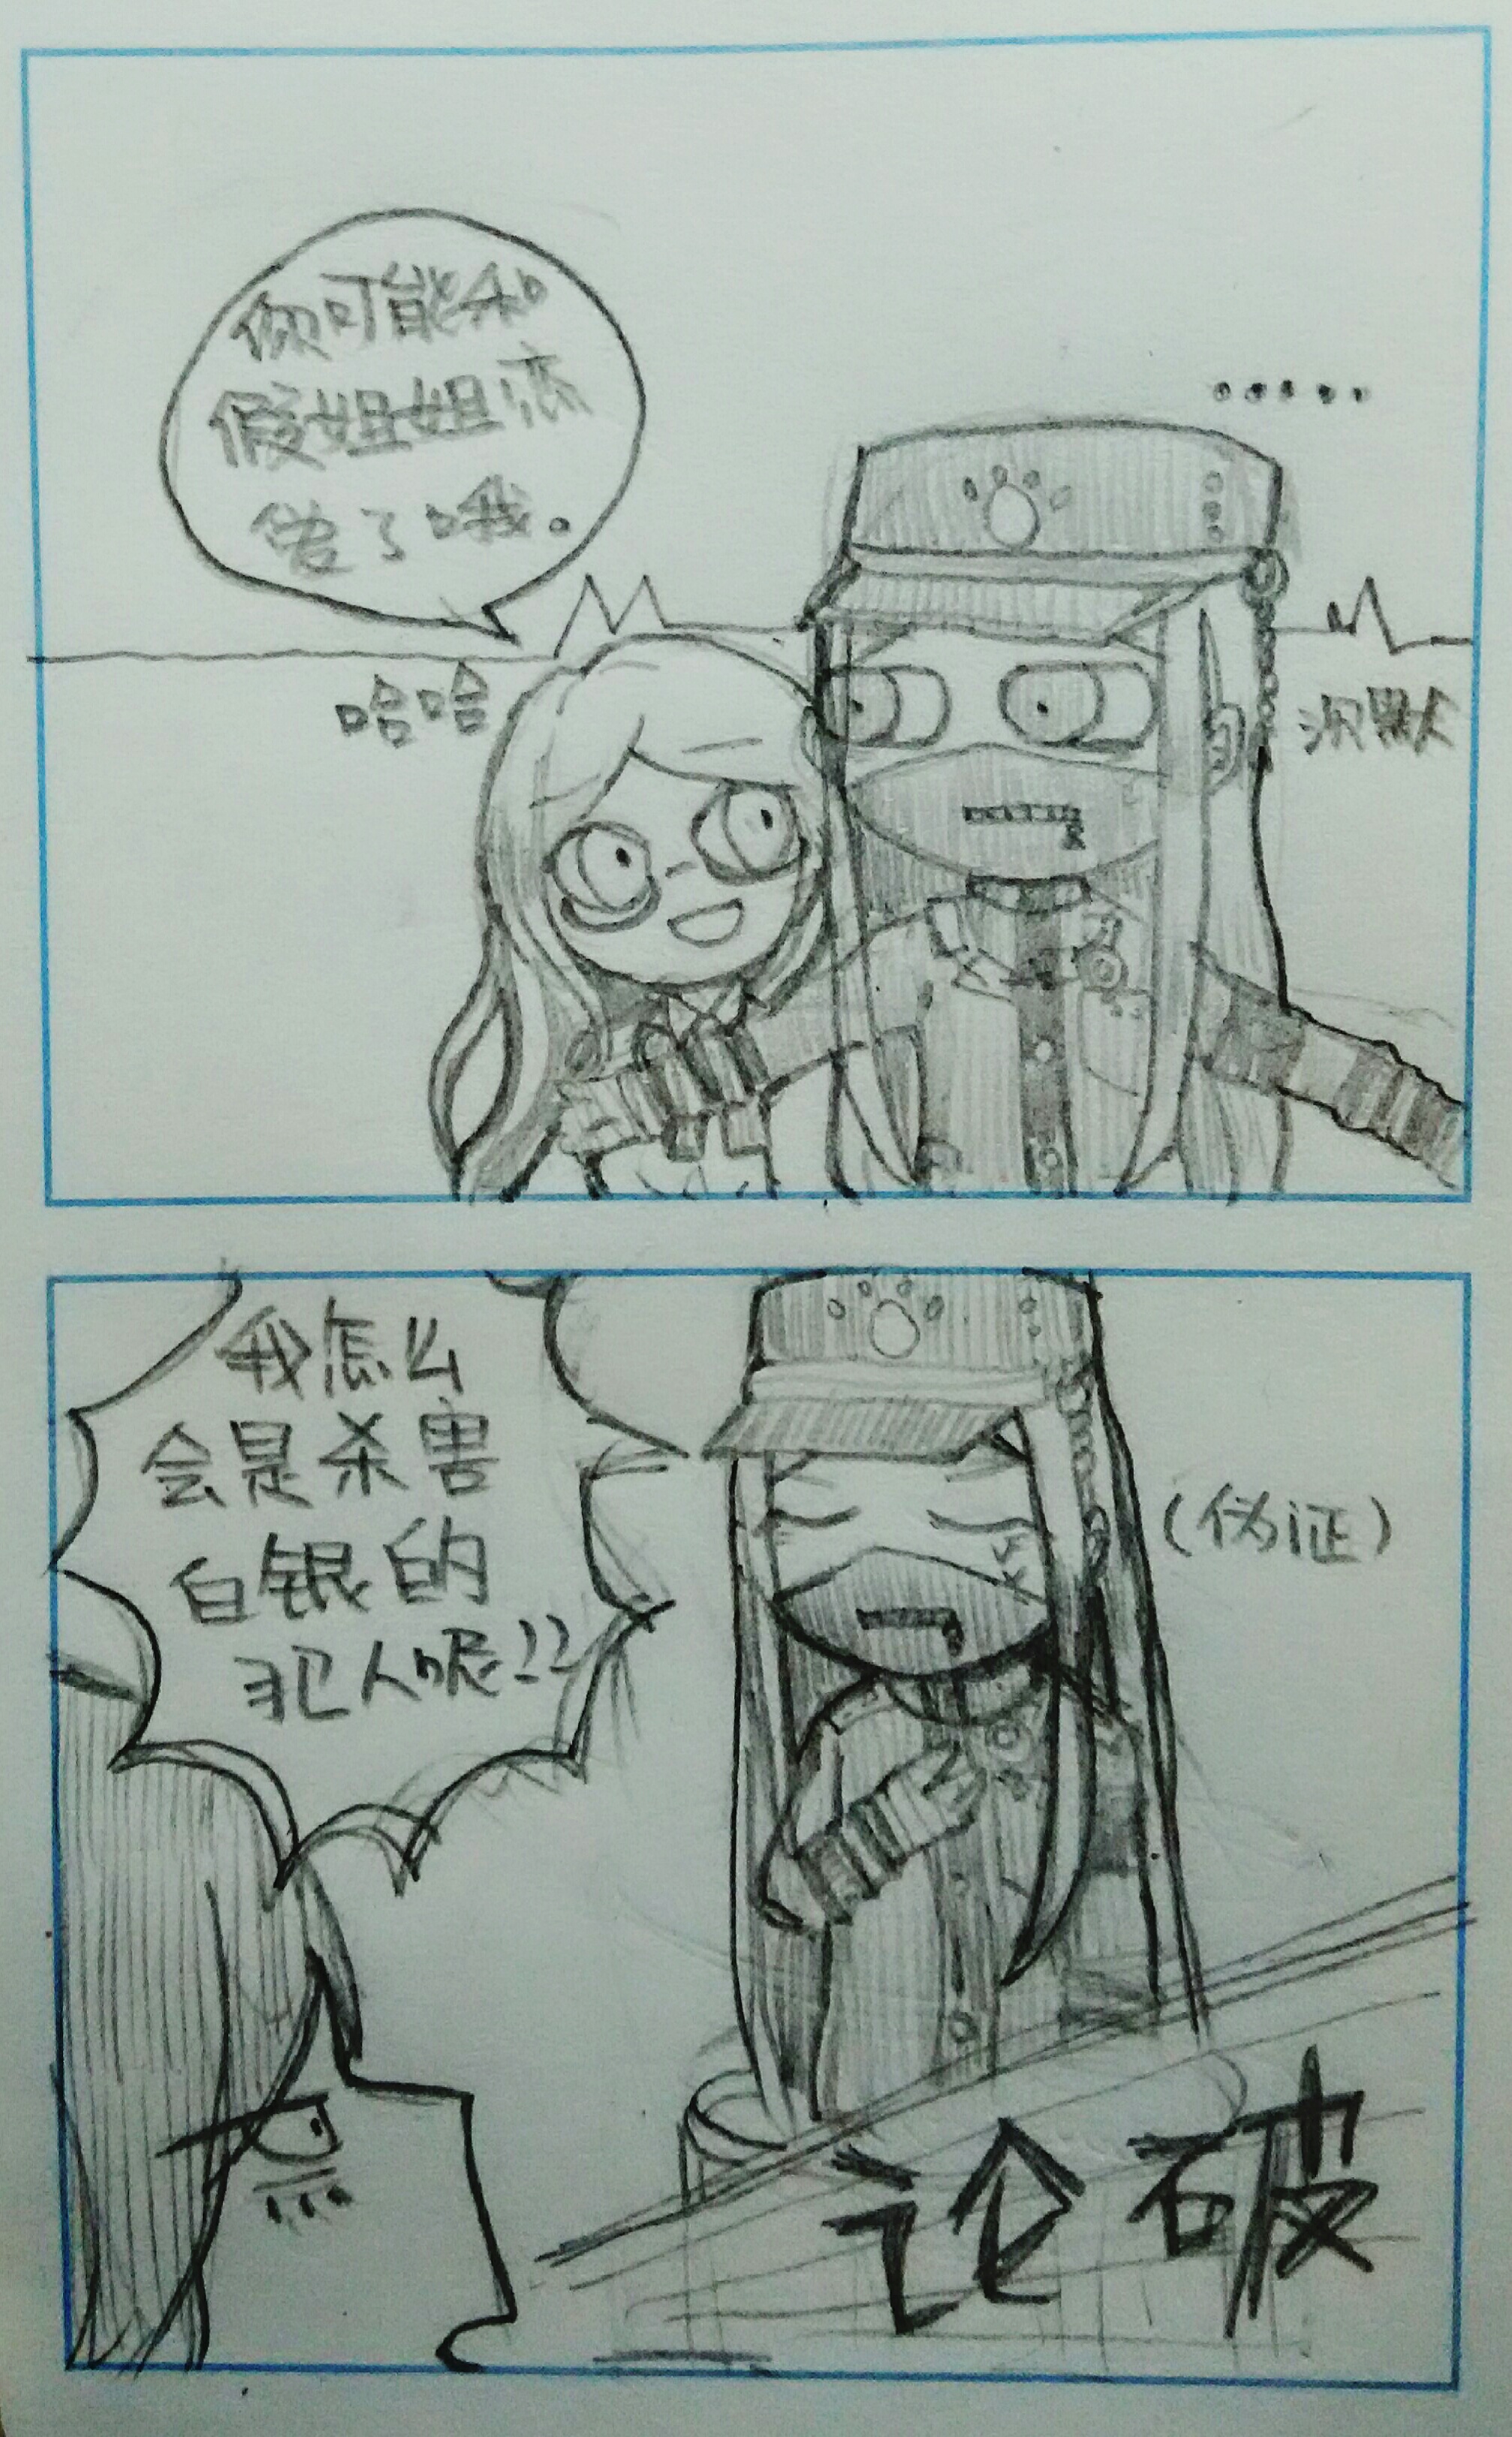 你可能和
假姐姐恋
爱了哦。
.....
哈哈
沉默
我怎么
会是杀害
白银的
犯人呢!?
(伪证)
论破